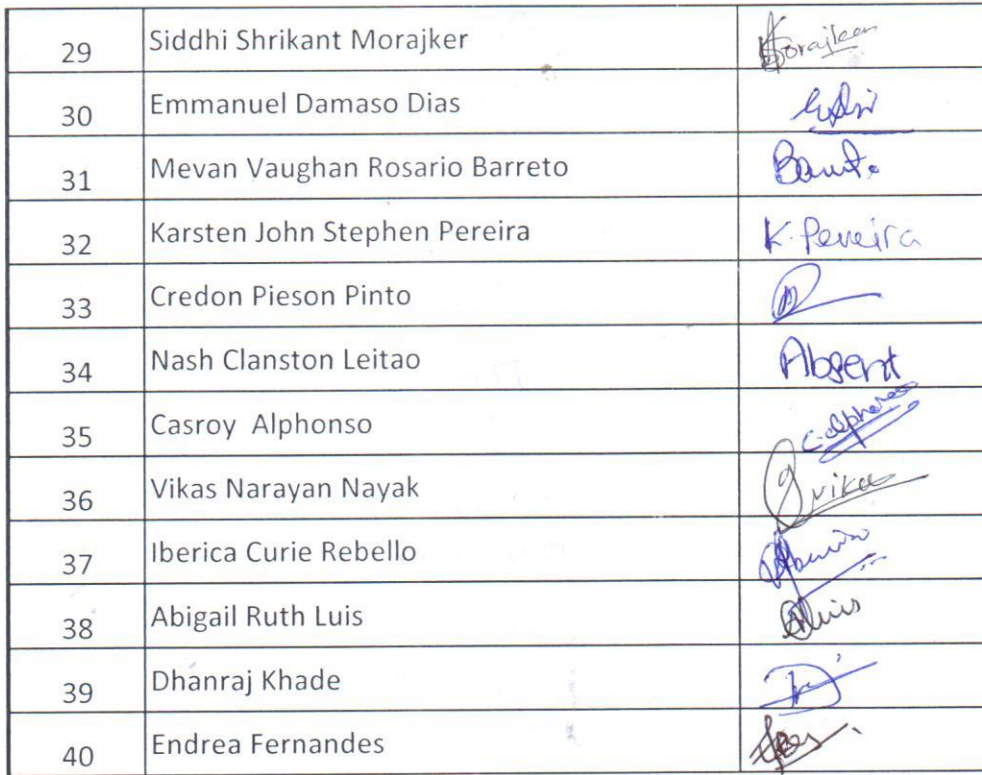 29 Siddhi Shrikant Morajker Morajker
30 Emmanuel Damaso Dias
31 Mevan Vaughan Rosario Barreto
32 Karsten John Stephen Pereira K. Pereira
33 Credon Pieson Pinto
34 Nash Clanston Leitao Absent
35 Casroy Alphonso
36 Vikas Narayan Nayak
37 Iberica Curie Rebello
38 Abigail Ruth Luis
39 Dhanraj Khade
40 Endrea Fernandes